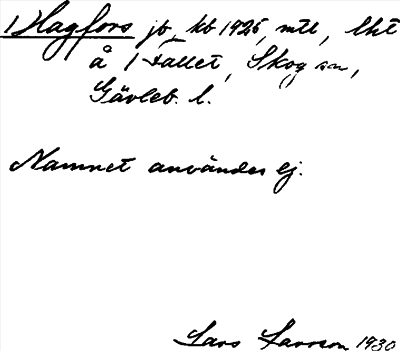 1) Hagfors jb, kb 1925, mtl, lht
å 1 Fallet, Skog sn,
Gävleb. l.
Namnet användes ej.
Lars Larsson 1930